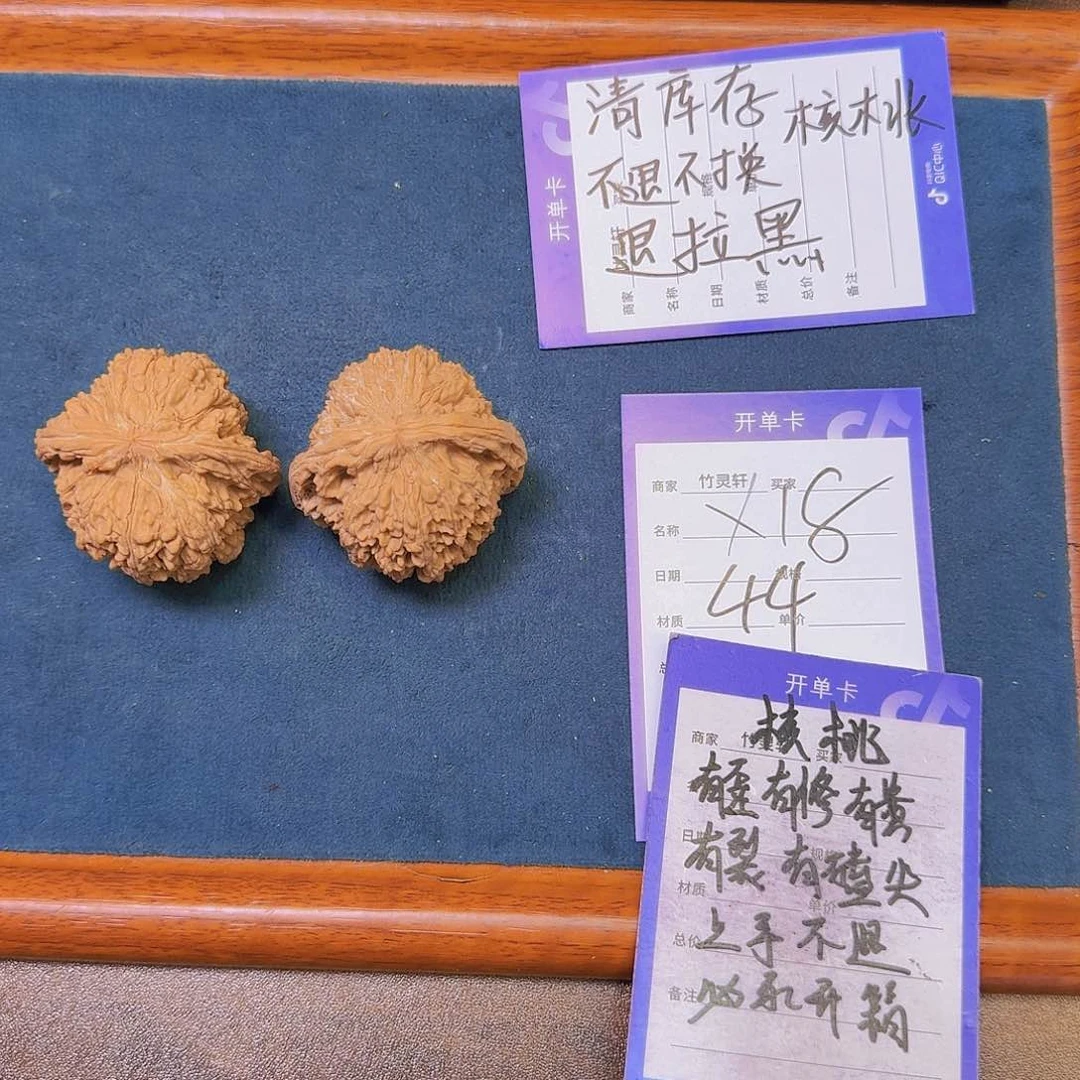 清库存 核桃
不退不换
退拉黑
开单卡
商家
名称
日期
材质
总价
备注
QIC中心
开单卡
商家 竹灵轩 买家
X18
名称
日期 规格
44
材质 单价
开单卡
商家 买家
核桃
有歪有修有黄
有裂有磕尖
材质
单价
总价
上手不退
备注
必录开箱